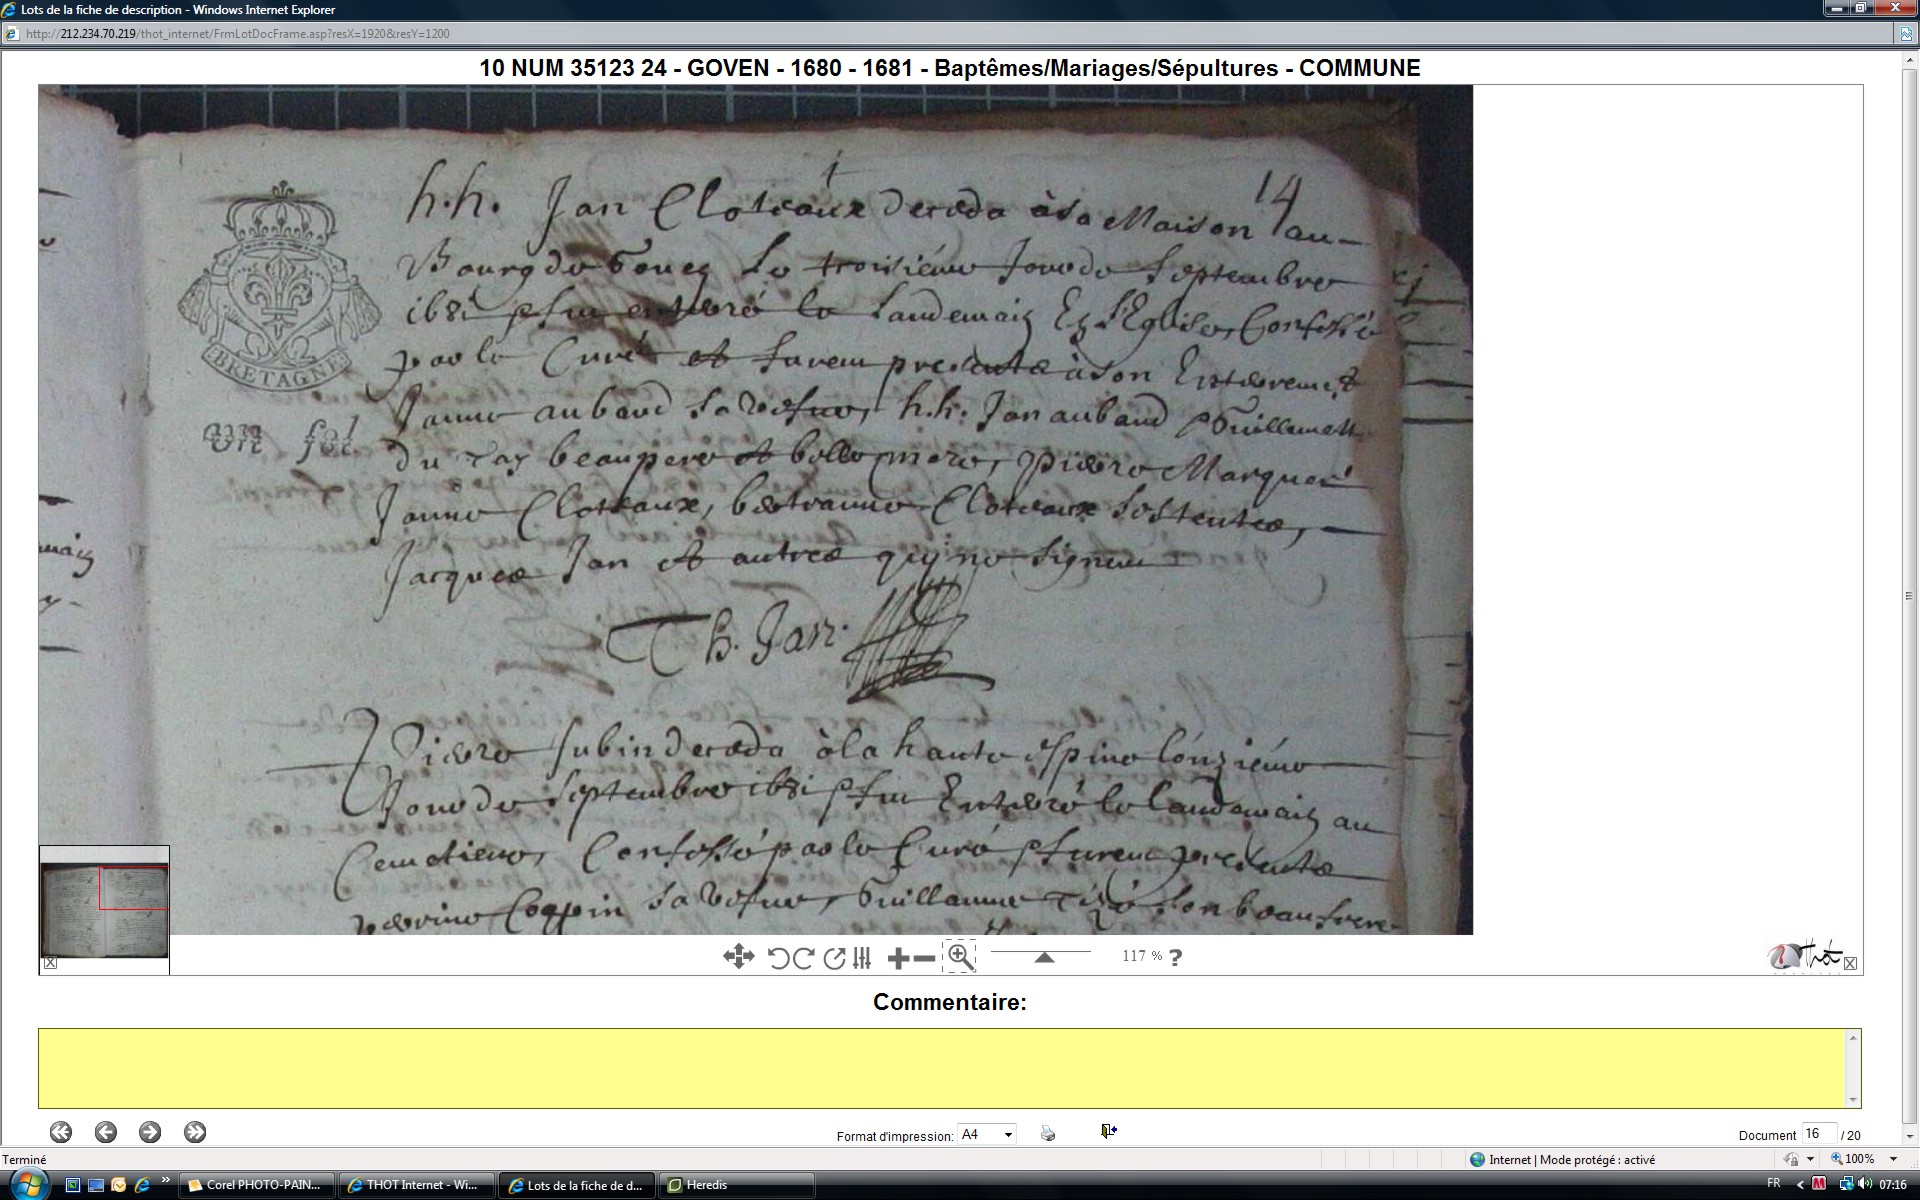 Lots de la fiche de description - Windows Internet Explorer
http://212.234.70.219/thot_internet/FrmLotDocFrame.asp?resX=1920&resY=1200
10 NUM 35123 24 - GOVEN - 1680 - 1681 - Baptêmes/Mariages/Sépultures - COMMUNE
14
h.h. Jan Cloteaux deceda à sa Maison au
Bourg de Goven le troisieme Jour de Septembre
1681 fut enterré le landemain En l'Eglise, Confessé
par le Curé et furent presents à son Enterrement
Janne aubaud sa vefue, h.h. Jan aubaud Guillemett
du beaupere et belle mere, pierre Marquer
Janne Cloteaux, bertranne Cloteaux ses tentes,
Jacques Jan et autres quy ne signent
Th. Jan.
BRETAGNE
Un sol
Pierre Jubin deceda à la haute espine lónzieme
Jour de Septembre 1681 fut Enterré le landemain au
Cemetiere, Confessé par le Curé furent presents
perrine Coppin sa vefue, Guillaume Tizé son beau frere
117 % ?
Thot
Commentaire:
Format d'impression: A4
Document 16 / 20
Terminé
Internet | Mode protégé : activé
100%
Corel PHOTO-PAIN...
THOT Internet - Wi...
Lots de la fiche de d...
Heredis
FR
07:16